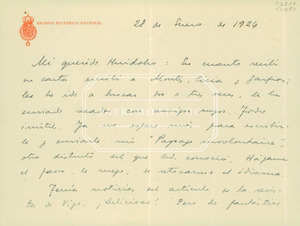 28 de Enero de 1924
Mi querido Huidobro: En cuanto recibí
su carta escribí a Montes, Ciria y Campos;
les he ido a buscar dos o tres veces, le he
enviado recados con amigos suyos. Todo
inútil. Ya no espero más para escribir-
le y enviarle mi "Paysage involontaire"
otro distinto del que Ud. conoció. Hágame
el favor, le ruego, de retocarme el idioma.
Tenía noticias del artículo de la revis-
ta de Vigo. ¡Delicioso! Pero lo fantástico